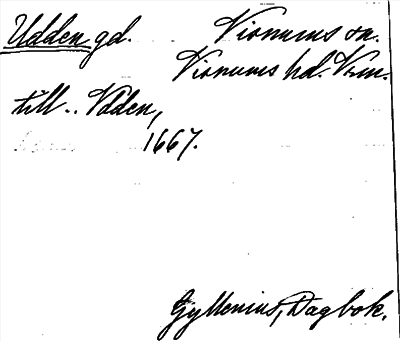 Udden gd. Visnums sn.
Visnums hd. Vrm.
till .. Vdden,
1667.
Gyllenius, Dagbok.